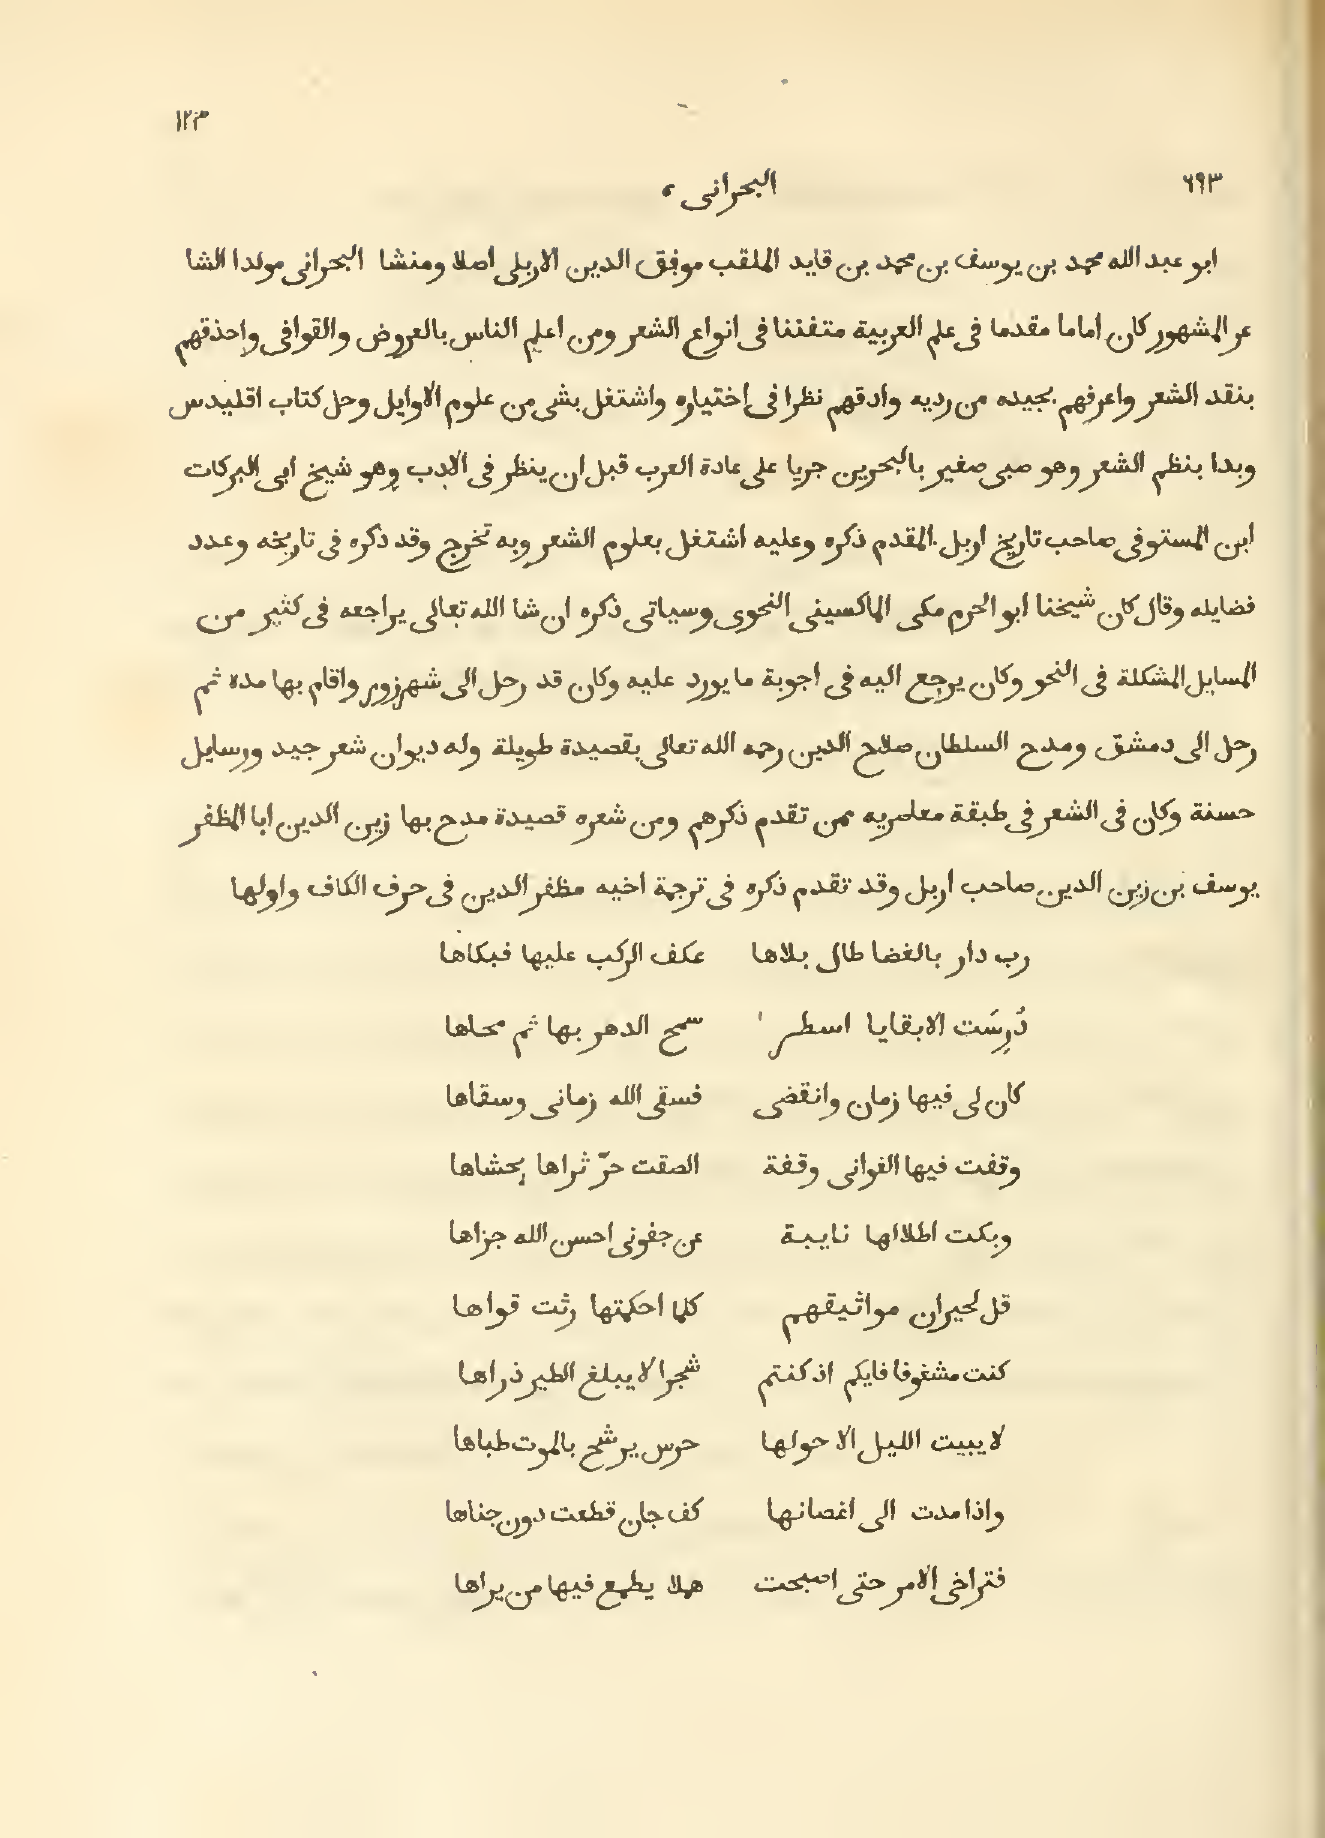 ١٢٣
٦٩٣
البحرانى
ابو عبد الله محمد بن يوسف بن محمد بن قايد الملقب موفق الدين الاربلى اصلا ومنشا البحرانى مولدا الشا
عر المشهور كان اماما مقدما فى علم العربية متفننا فى انواع الشعر ومن اعلم الناس بالعروض والقوافى واحذقهم
بنقد الشعر واعرفهم بجيده من رديه وادقهم نظرا فى اختياره واشتغل بشى من علوم الاوايل وحل كتاب اقليدس
وبدا بنظم الشعر وهو صبى صغير بالبحرين جريا على عادة العرب قبل ان ينظر فى الادب وهو شيخ ابى البركات
ابن المستوفى صاحب تاريخ اربل المقدم ذكره وعليه اشتغل بعلوم الشعر وبه تخرج وقد ذكره فى تاريخه وعدد
فضايله وقال كان شيخنا ابو الحرم مكى الماكسينى النحوى وسياتى ذكره ان شا الله تعالى يراجعه فى كثير من
المسايل المشكلة فى النحو وكان يرجع اليه فى اجوبة ما يورد عليه وكان قد رحل الى شهرزور واقام بها مده ثم
رحل الى دمشق ومدح السلطان صلاح الدين رحمه الله تعالى بقصيدة طويلة وله ديوان شعر جيد ورسايل
حسنة وكان فى الشعر فى طبقة معاصريه ممن تقدم ذكرهم ومن شعره قصيدة مدح بها زين الدين ابا المظفر
يوسف بن زين الدين صاحب اربل وقد تقدم ذكره فى ترجمة اخيه مظفر الدين فى حرف الكاف واولها
رب دار بالغضا طال بلاها عكف الركب عليها فبكاها
دُرِسَت الا بقايا اسطر سمح الدهر بها ثم محاها
كان لى فيها زمان وانقضى فسقى الله زمانى وسقاها
وقفت فيها الغوانى وقفة الصقت حرّ ثراها بحشاها
وبكت اطلالها نايبة عن جفونى احسن الله جزاها
قل لجيران مواثيقهم كلما احكمتها رثت قواها
كنت مشغوفا فايكم اذ كنتم شجرا لا يبلغ الطير ذراها
لا يبيت الليل الا حولها حرس يرشح بالموت ظباها
واذا مدت الى اغصانها كف جان قطعت دون جناها
فتراخى الامر حتى اصبحت هملا يطمع فيها من يراها